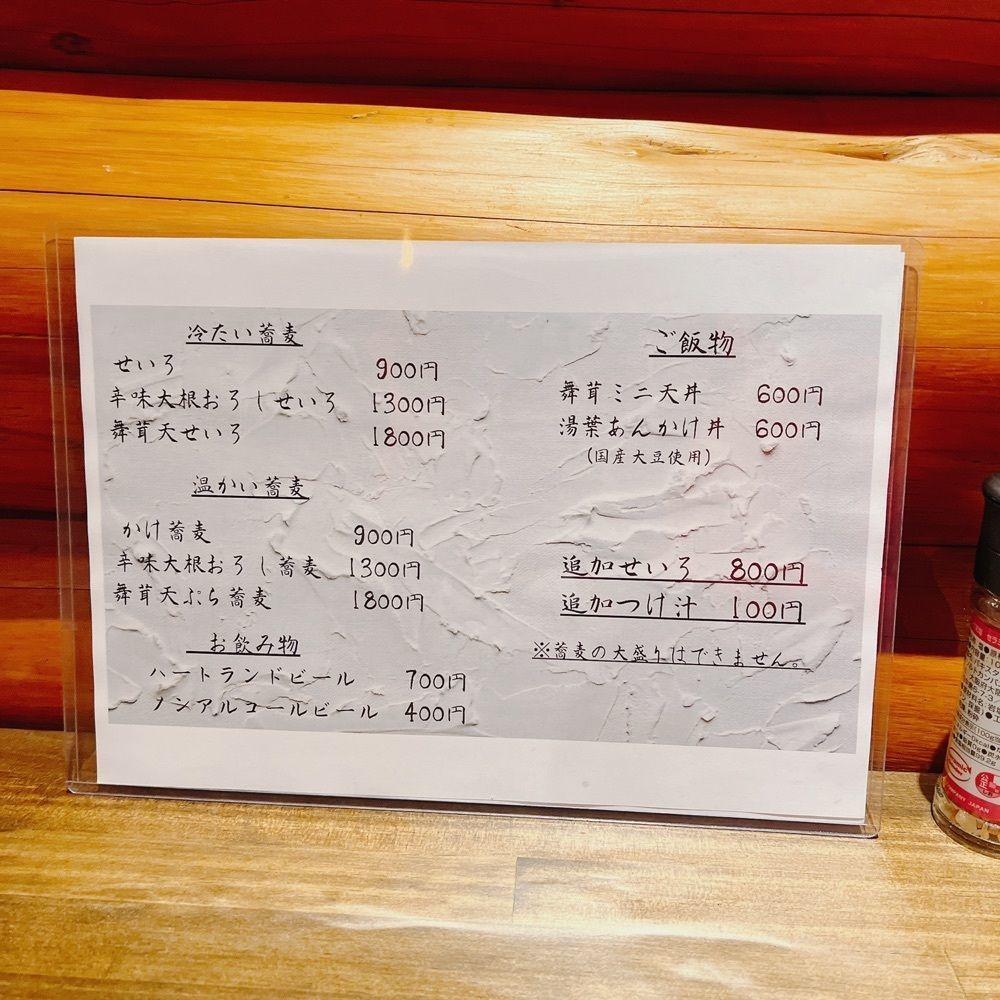 冷たい蕎麦
せいろ 900円
辛味大根おろしせいろ 1300円
舞茸天せいろ 1800円
温かい蕎麦
かけ蕎麦 900円
辛味大根おろし蕎麦 1300円
舞茸天ぷら蕎麦 1800円
お飲み物
ハートランドビール 700円
ノンアルコールビール 400円
ご飯物
舞茸ミニ天丼 600円
湯葉あんかけ丼 600円
(国産大豆使用)
追加せいろ 800円
追加つけ汁 100円
※蕎麦の大盛りはできません。